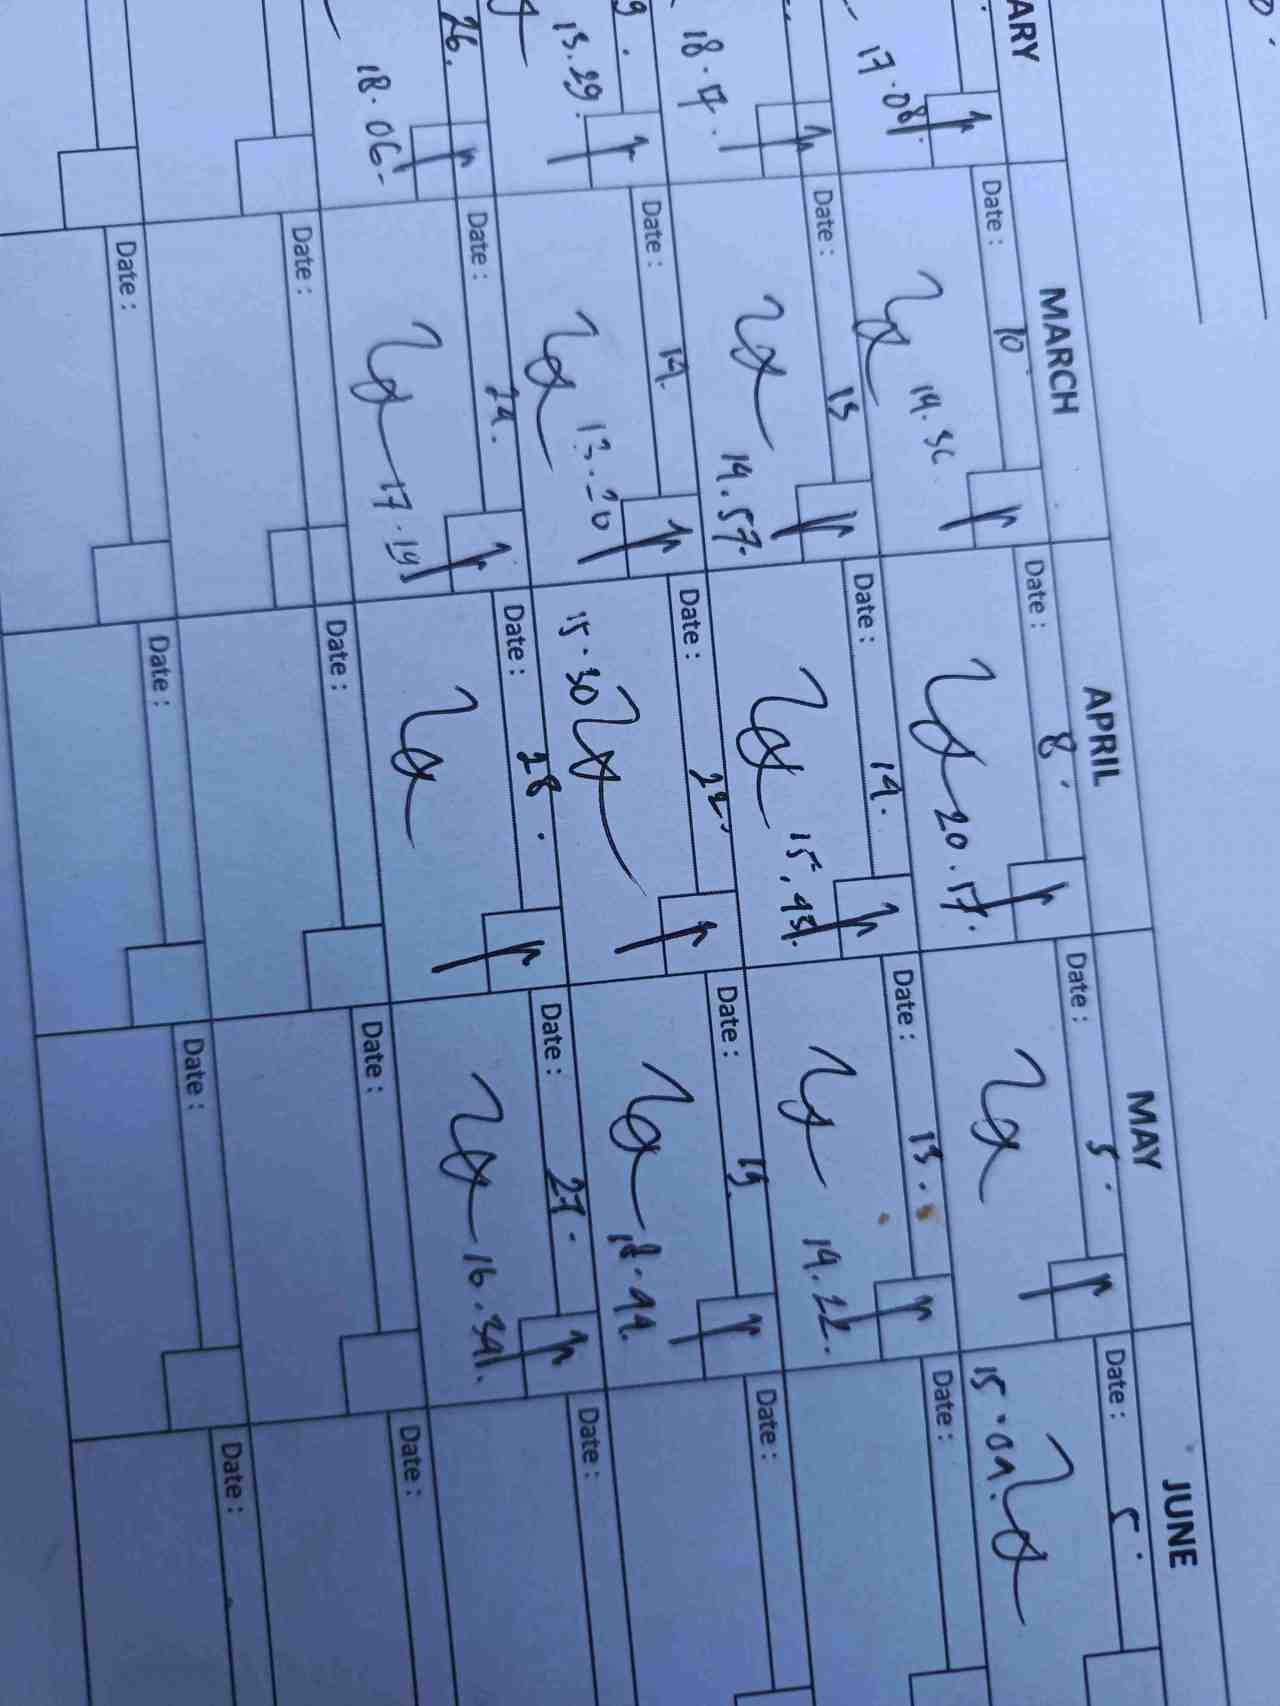 ARY MARCH APRIL MAY JUNE
Date: 10. Date: 8. Date: 5. Date: 5.
17.08. 14.36 20.17. 15.04.
Date: 15 Date: 14. Date: 13. Date:
18.17. 14.57. 15.45. 14.22.
9. Date: 19. Date: 22. Date: 19. Date:
15.29. 13.20 15.30 18.44.
26. Date: 24. Date: 28. Date: 27. Date:
18.06 17.19 16.34.
Date: Date: Date: Date:
Date: Date: Date: Date: